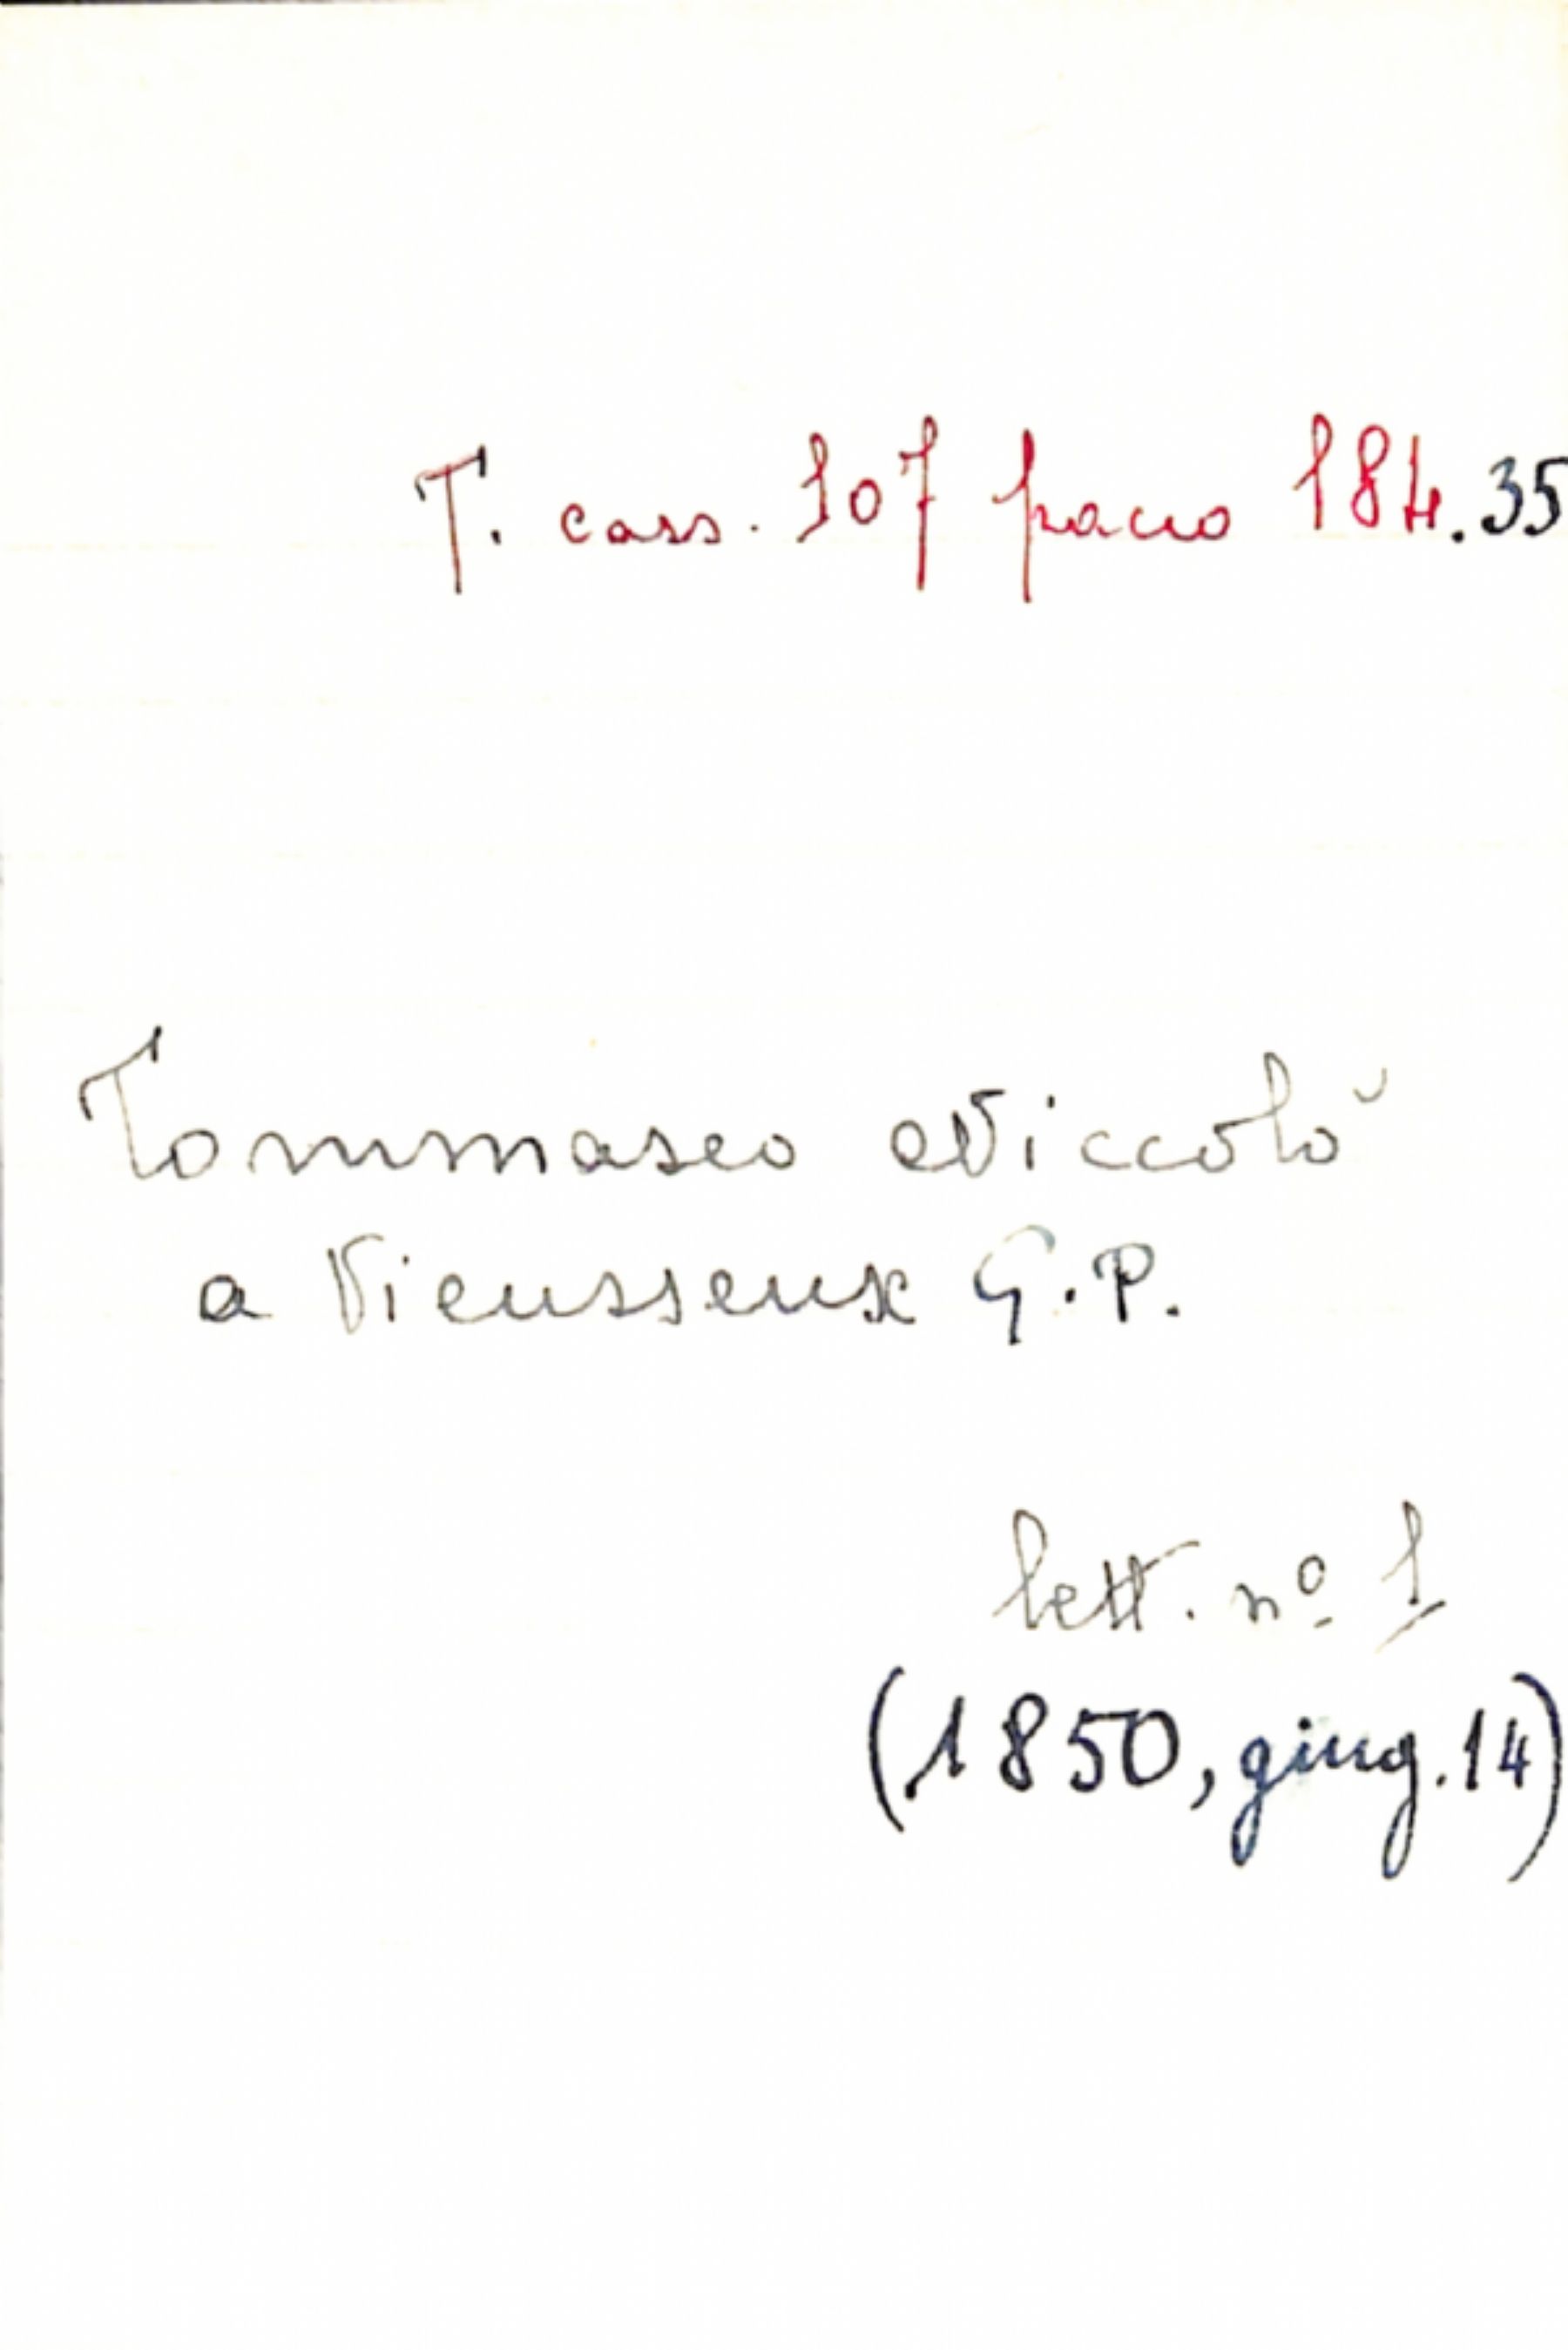 T. cass. 107 pacco 184.35
Tommaseo Niccolò
a Vieusseux G.P.
lett. nº 1
(1850, giug. 14)